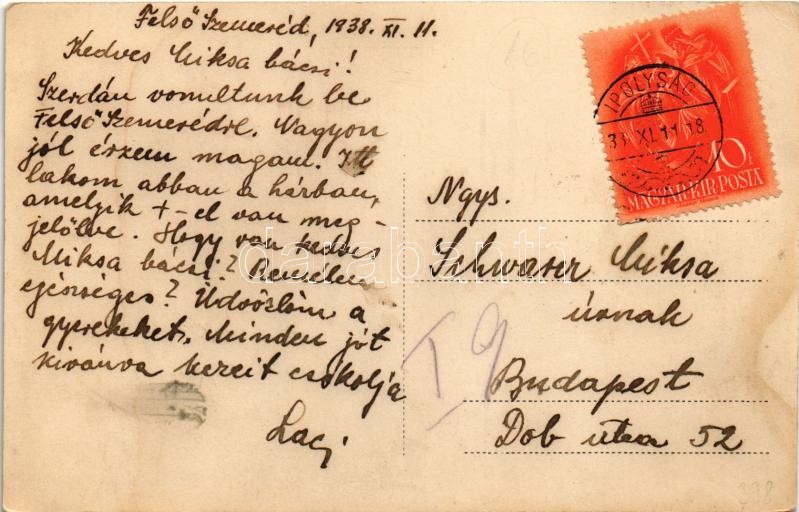 Felső Szemeréd, 1938. XI. 11.
Kedves Miksa bácsi!
Szerdán vonultunk be
Felső Szemerédre. Nagyon
jól érzem magam. Itt
lakom abban a házban,
amelyik +-el van meg-
jelölve. Hogy van kedves
Miksa bácsi? Remélem
egészséges? Üdvözlöm a
gyerekeket. Minden jót
kivánva kezeit csókolja
Laci
IPOLYSÁG
38 XI. 11 18
10 F
MAGYAR·KIR·POSTA
Ngys.
Schwarcz Miksa
úrnak
Budapest
Dob utca 52
I 9
darabanth